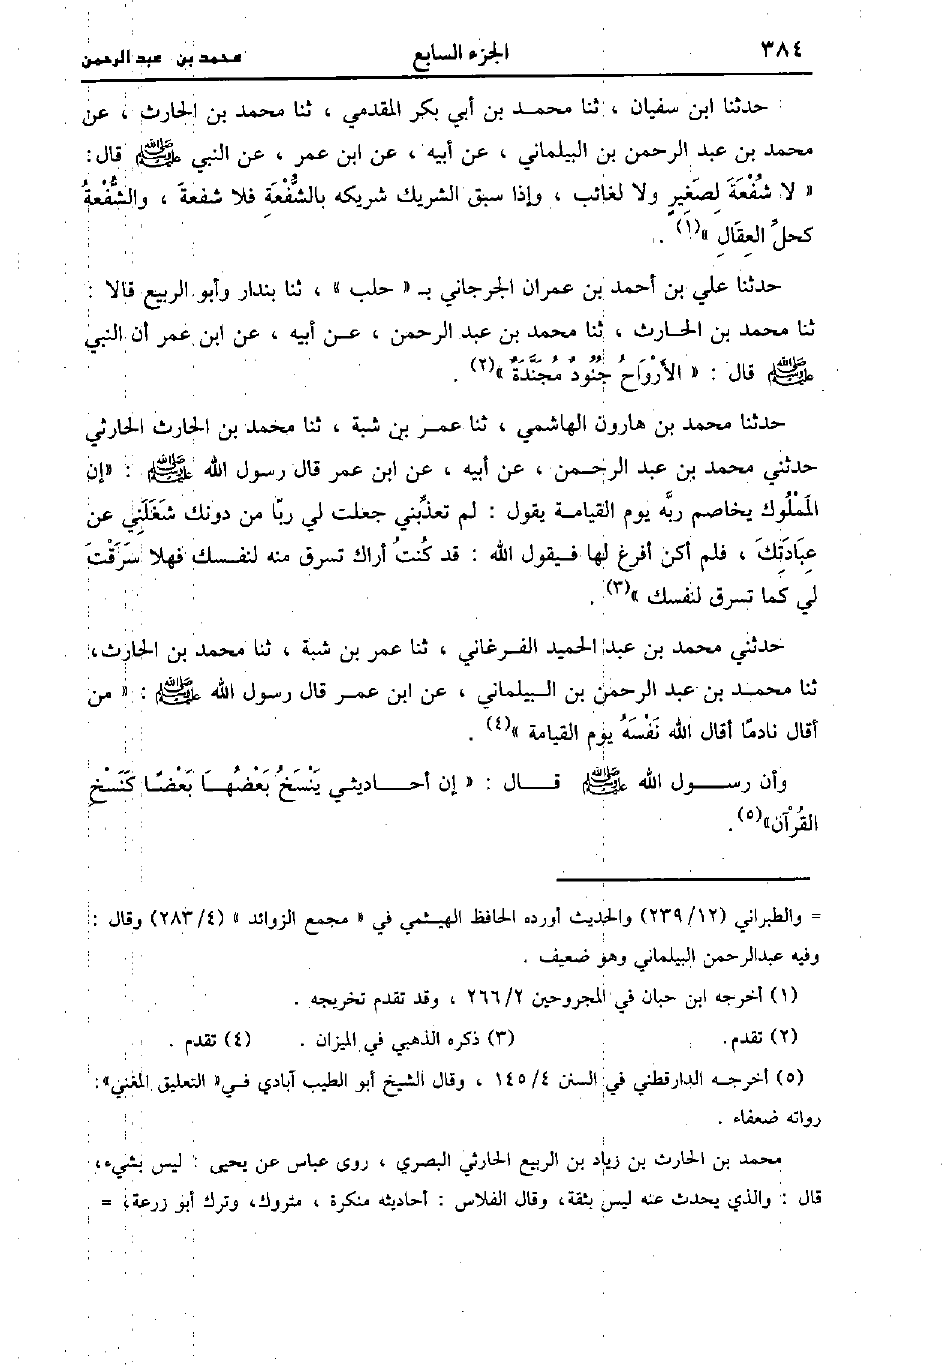 ٣٨٤ الجزء السابع محمد بن عبد الرحمن
حدثنا ابن سفيان ، ثنا محمد بن أبي بكر المقدمي ، ثنا محمد بن الحارث ، عن
محمد بن عبد الرحمن بن البيلماني ، عن أبيه ، عن ابن عمر ، عن النبي ﷺ قال :
« لا شُفْعَةَ لِصَغيرٍ ولا لغائب ، وإذا سبق الشريك شريكه بالشُّفْعَةِ فلا شفعةَ ، والشُّفْعةُ
كحلِّ العِقَالِ »(١) .
حدثنا علي بن أحمد بن عمران الجرجاني بـ « حلب » ، ثنا بندار وأبو الربيع قالا :
ثنا محمد بن الحارث ، ثنا محمد بن عبد الرحمن ، عن أبيه ، عن ابن عمر أن النبي
ﷺ قال : « الأرْوَاحُ جُنُودٌ مُجَنَّدَةٌ »(٢) .
حدثنا محمد بن هارون الهاشمي ، ثنا عمر بن شبة ، ثنا محمد بن الحارث الحارثي
حدثني محمد بن عبد الرحمن ، عن أبيه ، عن ابن عمر قال رسول الله ﷺ : «إن
المَمْلُوك يخاصم ربَّه يوم القيامة يقول : لم تعذِّبني جعلت لي ربّا من دونك شَغَلَنِي عن
عِبَادَتِكَ ، فلم أكن أفرغ لها فيقول الله : قد كُنتُ أراك تسرق منه لنفسك فهلا سَرَقْتَ
لي كما تسرق لنفسك »(٣) .
حدثني محمد بن عبد الحميد الفرغاني ، ثنا عمر بن شبة ، ثنا محمد بن الحارث ،
ثنا محمد بن عبد الرحمن بن البيلماني ، عن ابن عمر قال رسول الله ﷺ : « من
أقال نادمًا أقال الله نَفْسَهُ يوم القيامة »(٤) .
وأن رسول الله ﷺ قال : « إن أحاديثي يَنْسَخُ بَعْضُهَا بَعْضًا كَنَسْخِ
القُرْآن»(٥) .
= والطبراني (١٢/ ٢٣٩) والحديث أورده الحافظ الهيثمي في « مجمع الزوائد » (٤/ ٢٨٣) وقال :
وفيه عبدالرحمن البيلماني وهو ضعيف .
(١) أخرجه ابن حبان في المجروحين ٢/ ٢٦٦ ، وقد تقدم تخريجه .
(٢) تقدم. (٣) ذكره الذهبي في الميزان . (٤) تقدم .
(٥) أخرجه الدارقطني في السنن ٤/ ١٤٥ ، وقال الشيخ أبو الطيب آبادي في« التعليق المغني»:
رواته ضعفاء .
محمد بن الحارث بن زياد بن الربيع الحارثي البصري ، روى عباس عن يحيى : ليس بشيء،
قال : والذي يحدث عنه ليس بثقة، وقال الفلاس : أحاديثه منكرة ، متروك، وترك أبو زرعة، =